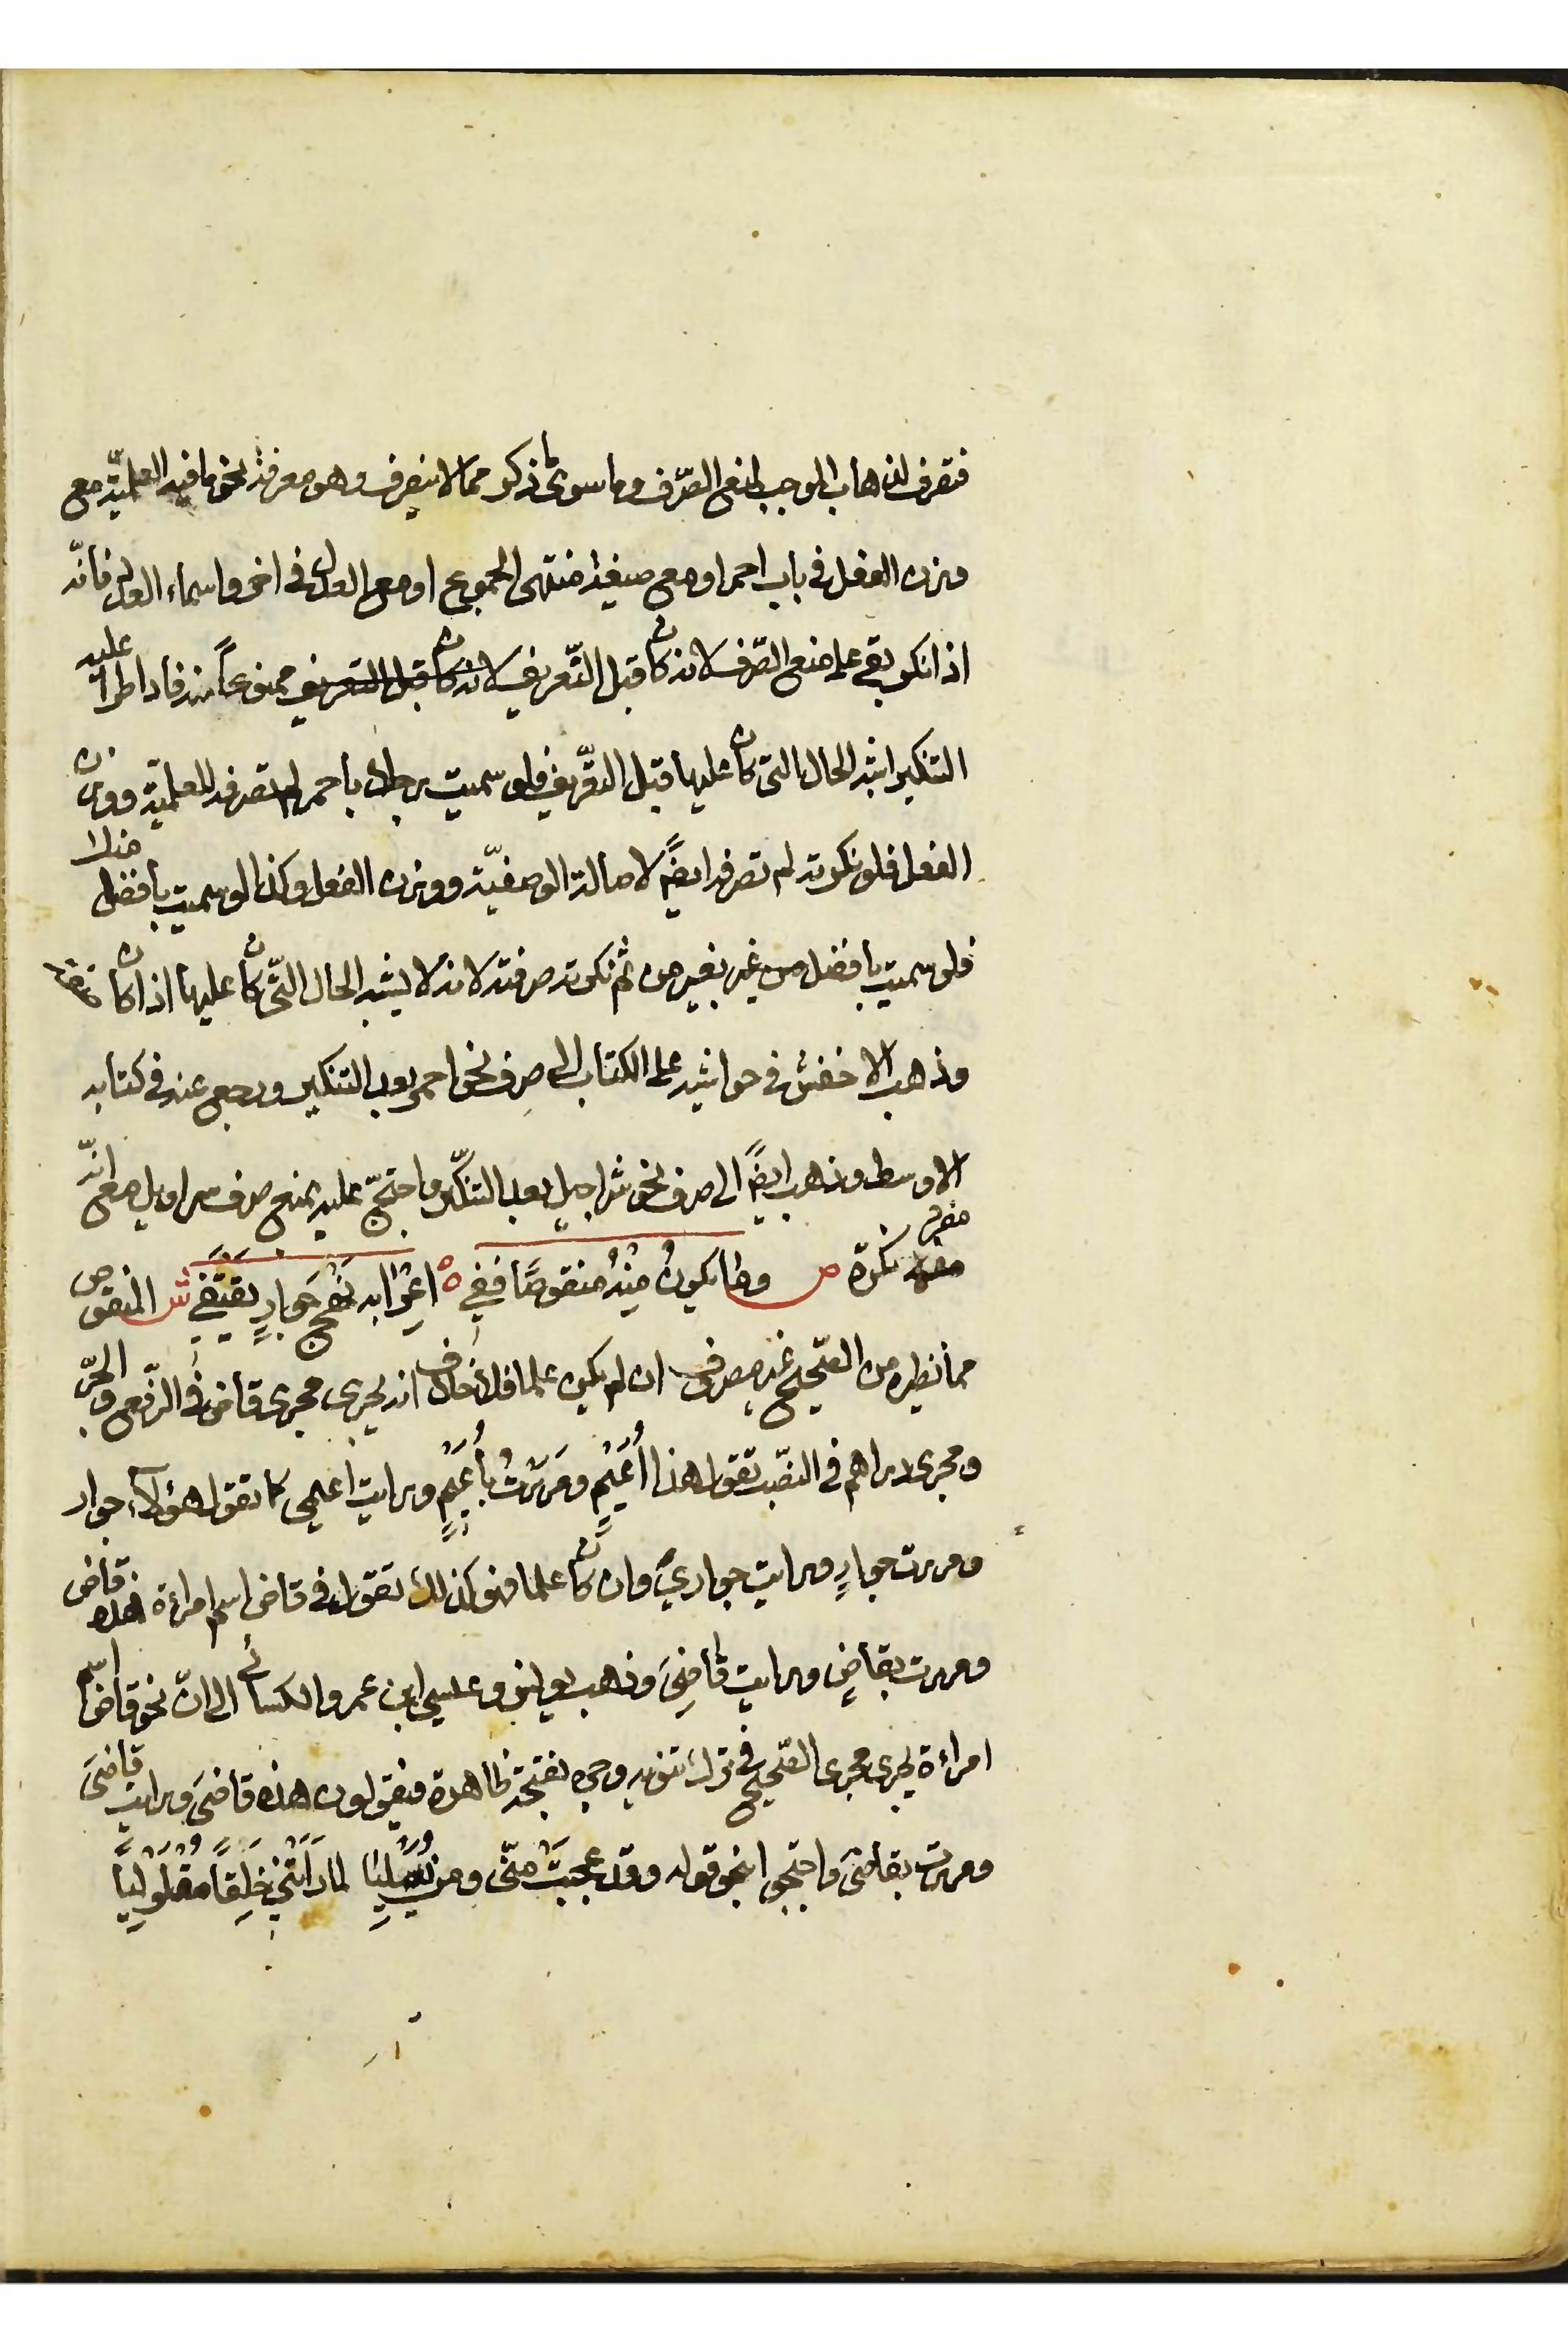 فتصرف لذهاب الموجب لمنع الصّرف وما سوى ما ذكر مما لا ينصرف وهو معرفة نحو ما فيه العلميّة مع
وزن الفعل في باب احمر او مع صيغة منتهى الجموع او مع العدل في اخر واسماء العدل فانّه
اذا نكر بقى على منع الصّرف لانه كان قبل التّعريف لانه كان قبل التعريف ممنوعاً منه فاذا طرأ عليه
التنكير اشبه الحال التى كان عليها قبل التعّريف فلو سميت رجلا باحمر لم تصرفه للعلميّة ووزن
الفعل فلو نكرته لم تصرفه ايضاً لاصالة الوصفيّة ووزن الفعل وكذا لو سميت بافضل منك
فلو سميت بافضل من غير بغير من ثم نكرته صرفته لانه لا يشبه الحال التّى كان عليها اذا كان صفة
وذهب الاخفش في حواشيه على الكتاب الى صرف نحو احمر بعد التنكير ورجع عنه في كتابه
الاوسط وذهب ايضاً الى صرف نحو شراحيل بعد التنكّير واحتجّ عليه بمنع صرف سراويل مع انّه
مفرد نكرة ص وما يكونُ مِنْهُ منقوصًا ففي ه اعِرْابه نَهْجَ جَوارٍ يَقتَفي ش المنقوص
مما نظيره من الصّحيح غير مصرف ان لم يكن علما فلا خلاف انه يجرى مجرى قاض في الرّفع والجرّ
ومجرى دراهم في النصّب تقول هذا أُعَيْمٍ ومَرَرْتُ بأُعَيْمٍ ورايت اعيمى كما تقول هؤلاء جوار
ومررت جوارٍ ورايت جواريَ وان كان علما فهو كذلك تقول في قاض اسم امراءة هذه قاض
ومررت بقاضٍ ورايت قاضِىَ وذهب يونس وعيسى ابن عمر والكسائى الى انّ نحو قاض اسم
امراءة يجرى مجرى الصّحيح في ترك تنوينه وجره بفتحة ظاهرة فيقولون هذه قاضىَ ورايت قاضىَ
ومررت بقاضىَ واحتجوا بنحو قوله وقد عجبَتْ منّى ومن يُعَيْلِيَا لما رَاَتْنِي خَلِقاً مُقْلَوْلِيَاً